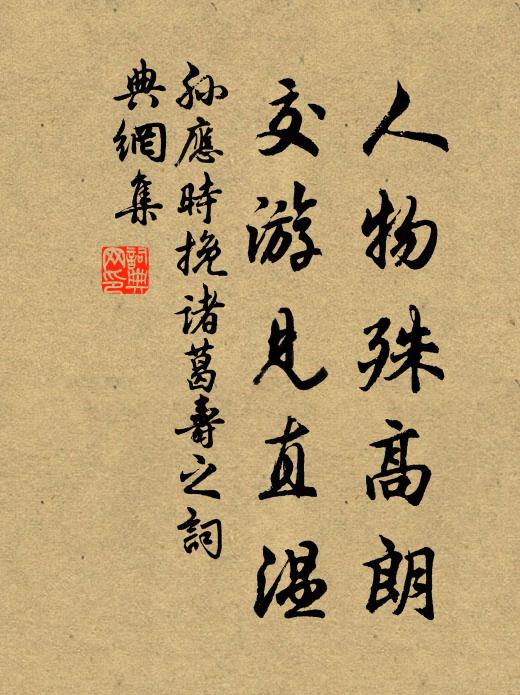 人物殊高朗
交游見直温
孫應時挽諸葛壽之詞
典網集
詞典网印